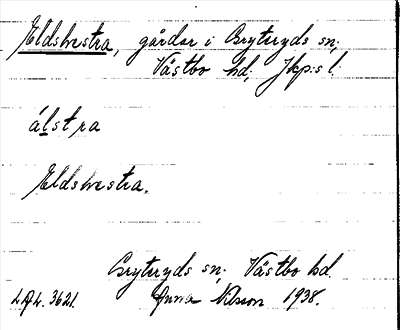 Eldshestra, gårdar i Bryteryds sn,
Västbo hd, Jkp:s l.
álstra
Eldshestra.
Bryteryds sn, Västbo hd.
LAL. 3621. Anna Nilsson 1938.